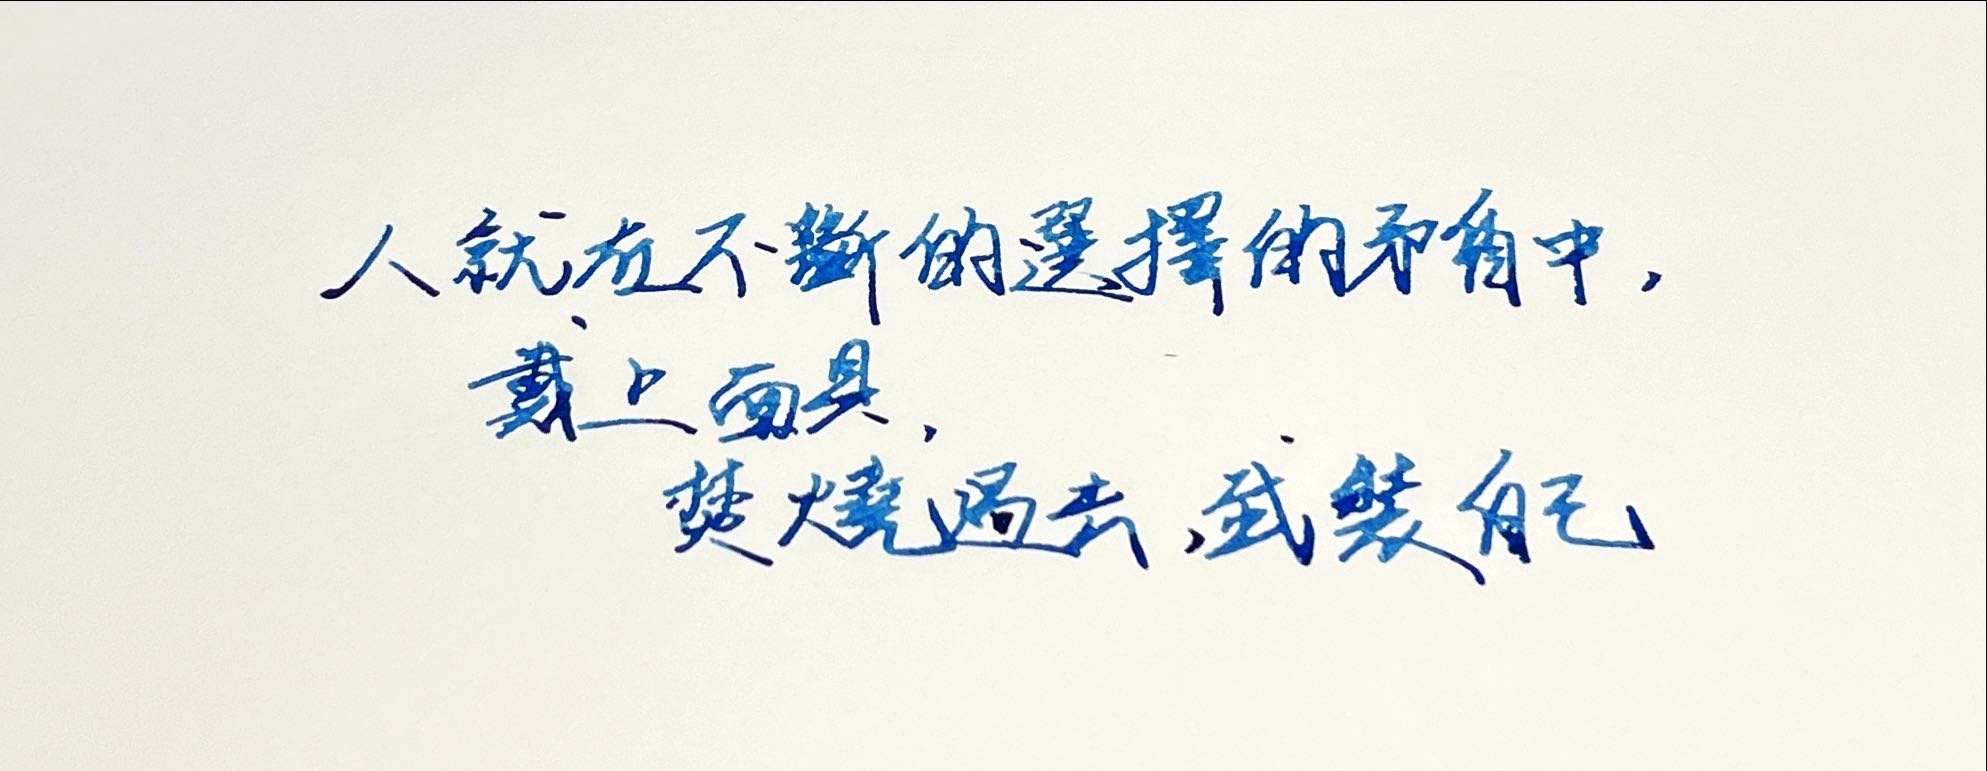 人就在不斷的選擇的矛盾中，
戴上面具，
焚燒過去，武裝自己